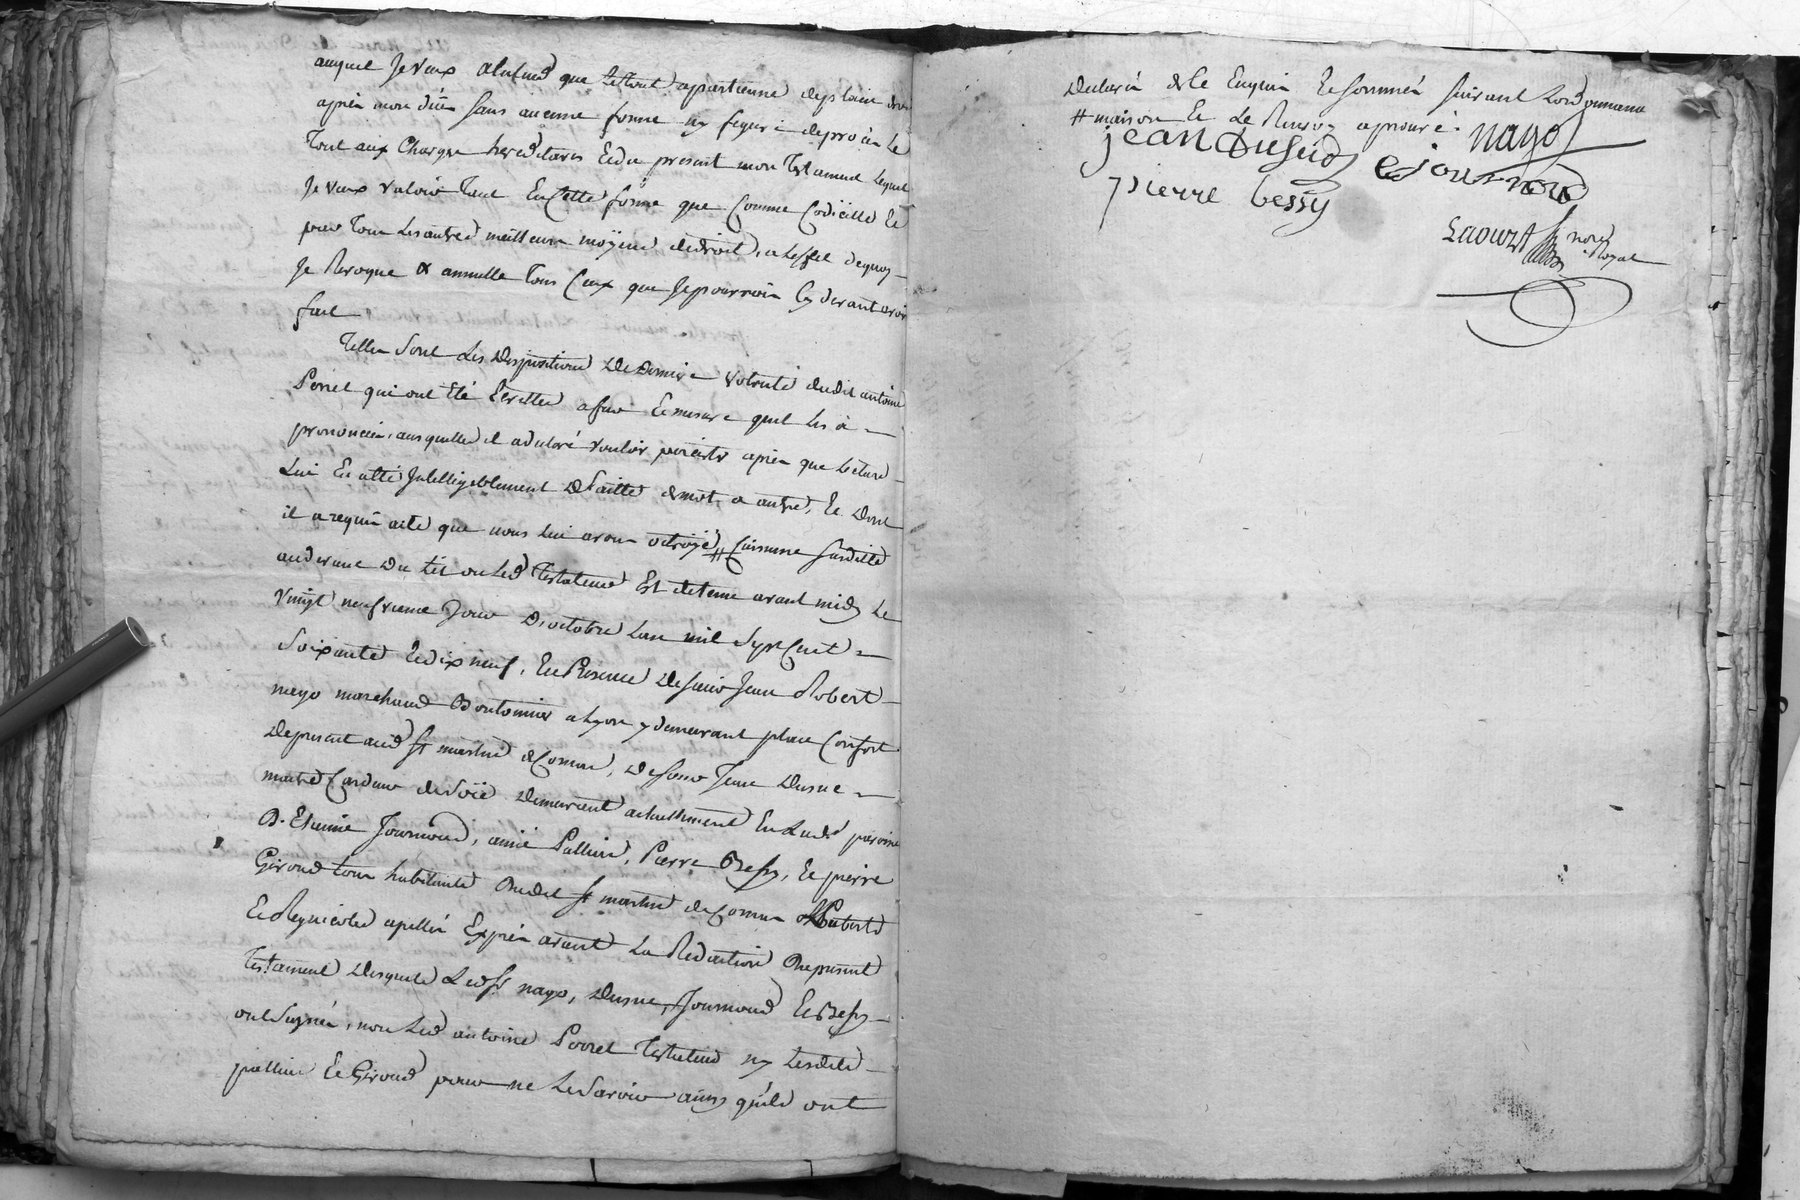 auquel Je veux que le tout apartienne de plain droit
après mon décès sans aucune forme ny figure de procès Le
Tout aux Charges hereditaires Et du present mon Testament Lequel
Je veux valoir Tant En Cette forme que Comme Codicille Et
pour Tous Les autres meilleurs moÿens de droit, a L'effet de quoy
Je Revoque & annulle Tous Ceux que Je pourrois Cy devant avoir
fait
Telles Sont Les Dispositions De Derniere volonté dudit antoine
Porret qui ont Eté Ecrittes a fur Et mesure quil les à
prononcées, ausquelles il a declaré vouloir persister après que Lecture
Lui En a été Intelligiblement faitte de mot, a autre, Et Dont
il a requis acte que nous Lui avons octroyé, # Cuisine Susditte
au devant Du Lit ou Led Testateur Est detenu avant midy Le
vingt neufvieme Jour D'octobre L'an mil Sept Cent
Soixante Et dix neuf, En Presence De sieur Jean Robert
nayo marchand Boutonnier a Lyon y demeurant place Confort
De present aud St martin de Cornas, De sieur Jean Dusuc
maitre Cardeur de Soïe Demeurant actuellement En Lad. paroisse
D. Etienne Journoud, aimé Pallin, Pierre Bessy, Et pierre
Giroud tous habitants Dudit St martin de Cornas
Et Regnicoles apellés Exprès avant La Redaction Du present
Testament Desquels Led Sr nayo, Dusuc, Journoud Et Bessy
ont Signés, non Led antoine Porret Testateur ny Lesdits
pallin Et Giroud pour ne Le Savoir ainsy qu'ils ont
Declaré de Ce Enquis Et Sommés Suivant L'ordonnance
# maison Et Le Renvoy aprouvé.
nayo
jean dusuc
e journoud
pierre bessy
notre Royal